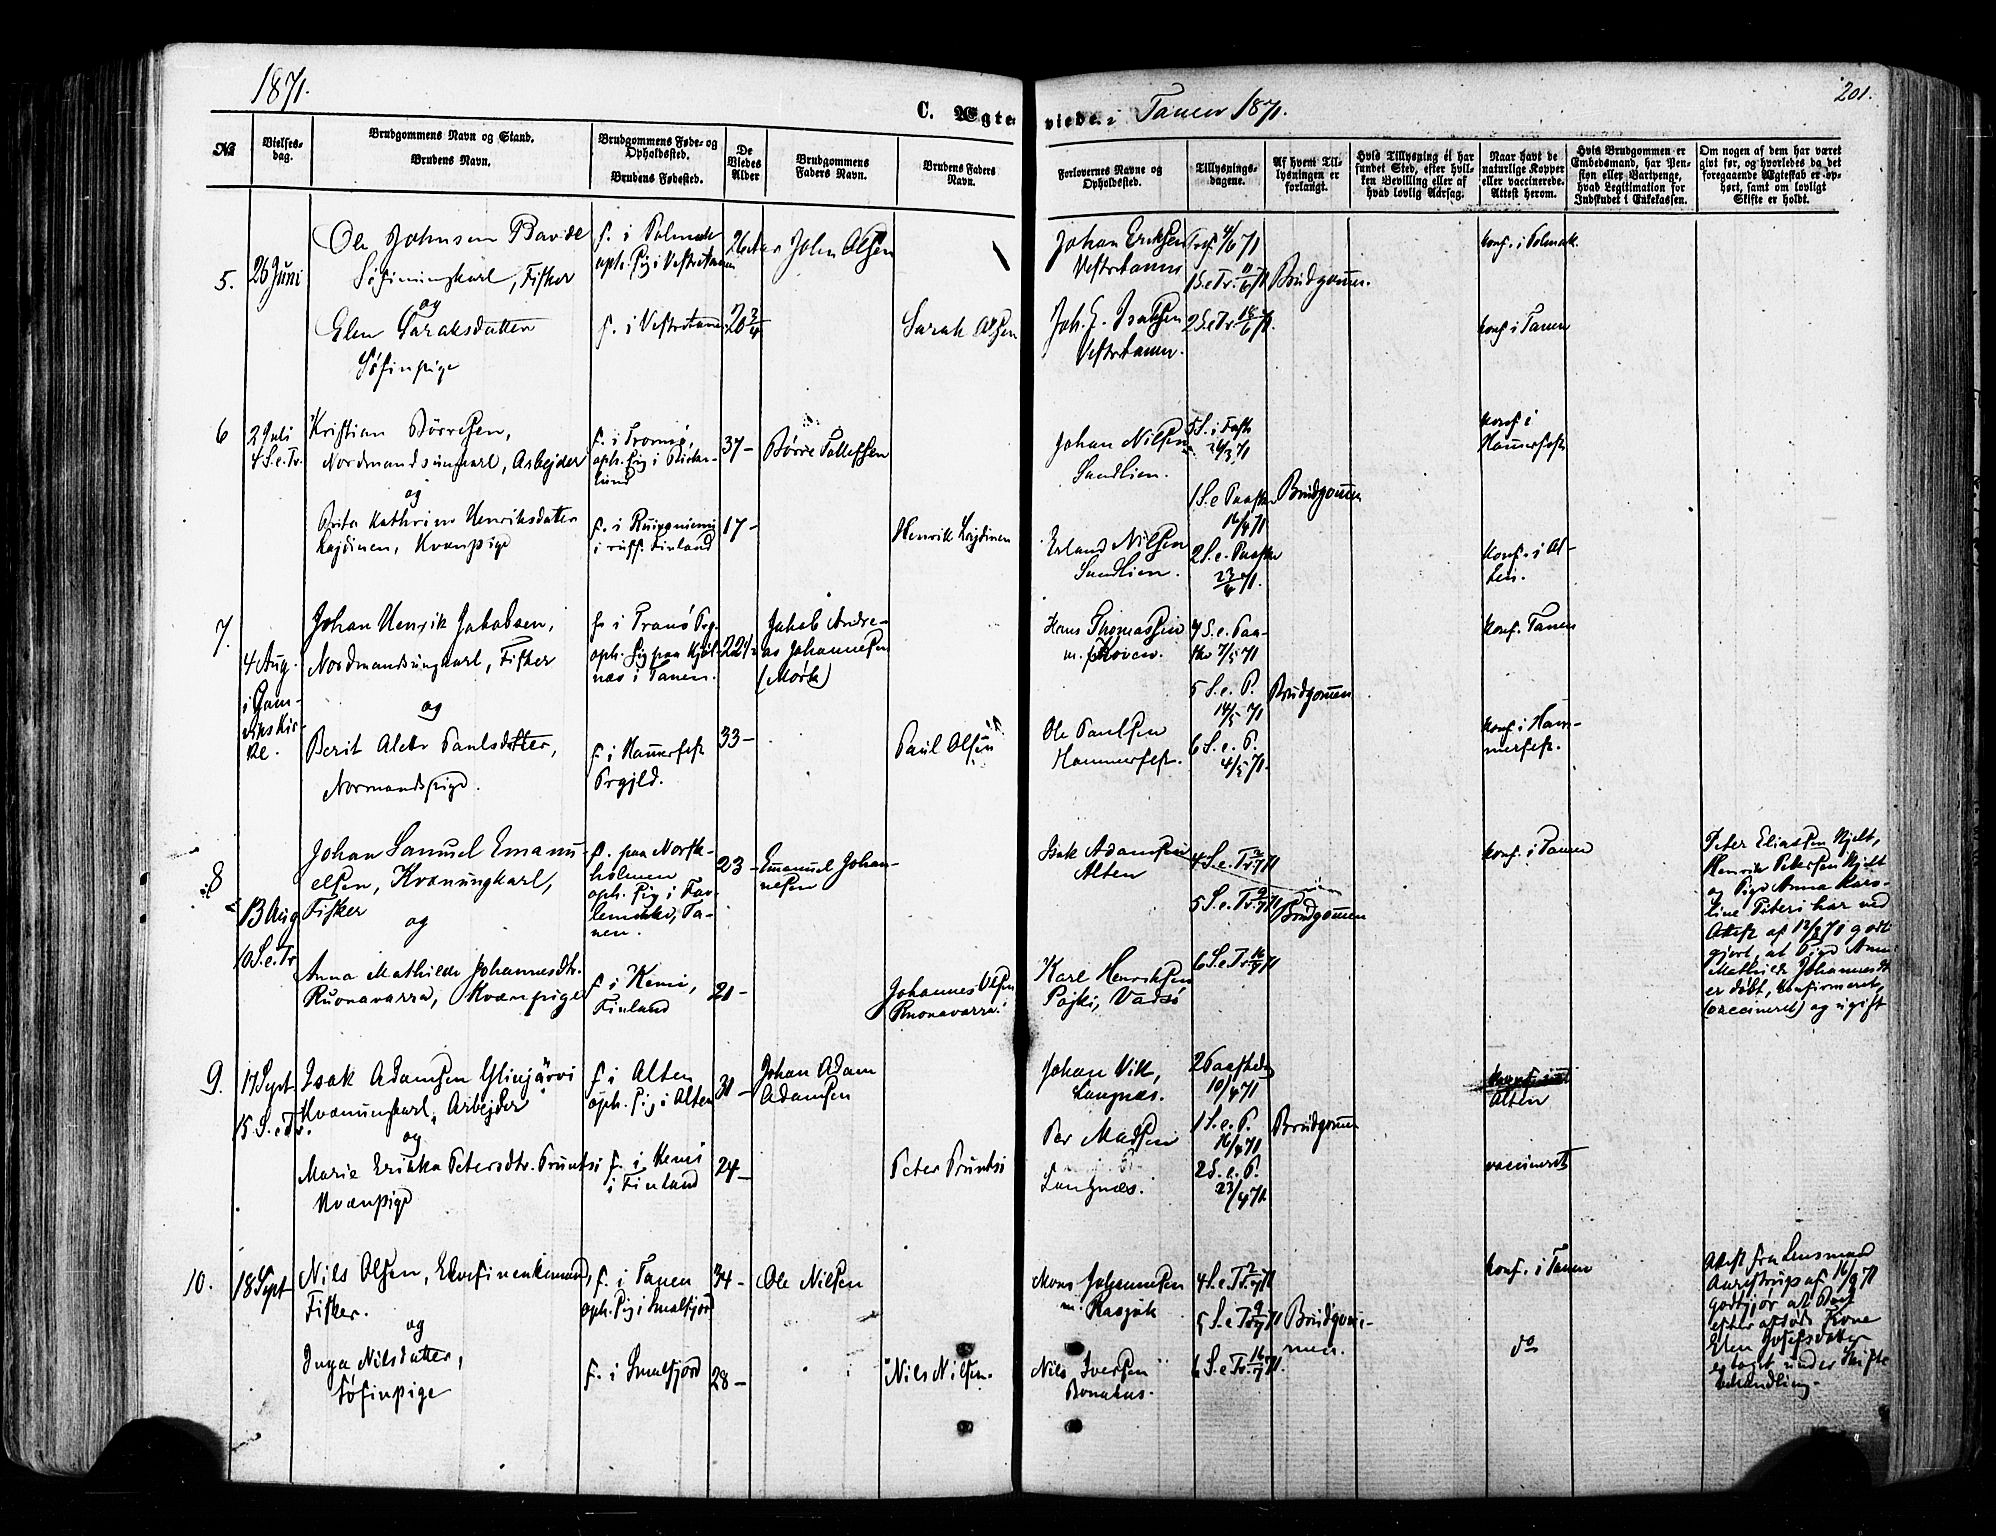 1871.
C. Ægteviede i Tanen 1871.
201.
№
Vielsesdag.
Brudgommens Navn og Stand.
Brudens Navn.
Brudgommens Føde- og Opholdssted.
Brudens Fødested.
De Viedes Alder
Brudgommens Faders Navn.
Brudens Faders Navn.
Forlovernes Navne og Opholdssted.
Tillysnings-dagene.
Af hvem Tillysningen er forlangt.
Hvis Tillysning ei har fundet Sted, efter hvilken Bevilling eller af hvad lovlig Aarsag.
Naar havt de naturlige Kopper eller vaccinerede. Attest herom.
Hvis Brudgommen er Embedsmand, har Pension eller Vartpenge, hvad Legitimation for Indskudet i Enkekassen.
Om nogen af dem har været givt før, og hvorledes da det foregaaende Ægteskab er ophørt, samt om lovligt Skifte er holdt.
5.
26 Juni
Ole Johnsen
Søfinungkarl, Fisker
og
Elen Saraksdatter
Søfinpige
f. i Polmak
oph. sig i Vestretanen
f. i Vestretanen
26
20 3/4
John Olsen
Sarak Olsen
Johan Eriksen
Vestertanen
Joh. E. Isaksen
Vestertanen.
4/6 71
1 S. e. Tr. 11/6 71
2 S. e. Tr. 18/6 71.
Brudgommen.
konf. i Polmak
konf. i Tanen
6
2 Juli
4 S. e. Tr.
Kristian Börresen,
Nordmandsungkarl, Arbejder
og
Brita Kathrine Henriksdatter
Lajdinen, Kvænpige
f. i Tromsø,
oph. sig i
f. i
i russ. Finland
37 -
17 -
Börre Tollefsen
Henrik Lajdinen
Johan Nilsen
Sandlien.
Erland Nilsen
Sandlien.
5 S. i Faste
26/3 71
1 S. e. Paaske
16/4 71
2 S. e. Paaske
23/4 71.
Brudgommen
konf. i
Hammerfest
konf. i Al-
ten.
7.
4 Aug.
i Gam-
viks Kir-
ke.
Johan Henrik Jakobsen,
Nordmandsungkarl, Fisker
og
Berit Alette Paulsdatter,
Normandspige.
f. i Tranö Prg.
oph. sig paa Kjöl-
næs i Tanen.
f. i Hammerfest
Prgjld.
22½
33 -
Jakob Andre-
as Johannesen
(Mörk)
Paul Olsen
Hans Thomassen
Ole Paulsen
Hammerfest.
4 S. e. Paa-
ske 7/5 71
5 S. e. P.
14/5 71
6 S. e. P.
4/5 71.
Brudgommen
konf. Tanen
konf. i Ham-
merfest.
8
13 Aug
10 S. e. Tr.
Johan Samuel Emanu-
elsen, Kvænungkarl,
Fisker
og
Anna Mathilde Johannesdtr.
Ruonavarra, Kvænpige
f. paa Norsk-
holmen
oph. sig i
Ta-
nen.
f. i Kemi,
Finland
23 -
21 -
Emanuel Johan-
nesen
Johannes Olsen
Ruonavarra.
Isak Adamsen
Alten
Karl Henriksen
Pojki, Vadsö
4 S. e. Tr. 2/7 71
5 S. e. Tr. 9/7 71
6 S. e. Tr. 16/7 71
Brudgommen
konf. i Tanen
Peter Eliassen Kjelt,
Henrik Petersen Kjelt
og Pige Anna Karo-
line Piteri har ved
Attest af 12/8 71 godt-
gjort, at Pige Anna
Mathilde Johannesdtr
er döbt, konfirmeret,
(vaccineret) og ugift
9.
17 Sept
15 S. e. Tr.
Isak Adamsen Ylinjärvi
Kvænungkarl, Arbejder
og
Marie Erikka Petersdtr. Pruntsi
Kvænpige
f. i Alten
oph. sig i Alten
f. i Kemi
i Finland
31 -
24 -
Johan Adam
Adamsen
Peter Pruntsi
Johan Vik,
Langnæs.
Per Madsen
Langnæs.
2 Paaskedag
10/4 71
1 S. e. P.
16/4 71
2 S. e. P.
23/4 71.
Brudgommen
Alten
vaccineret
10.
18 Sept
Nils Olsen, Elvefinenkemand,
Fisker.
og
Inga Nilsdatter,
Söfinpige
f. i Tanen
oph. sig i Smalfjord
f. i Smalfjord
34 -
28 -
Ole Nilsen
Nils Nilsen.
Mons Johannesen
Nils Iversen
Bonakas.
4 S. e. Tr. 2/7 71
5 S. e. Tr. 9/7 71
6 S. e. Tr. 16/7 71.
Brudgom-
men.
konf. i Tanen
do
Attest fra Lensmand
af 16/9 71
godtgjør at Boet
efter afdöde Kone
Elen Josefsdatter
er taget under Skifte-
behandling.